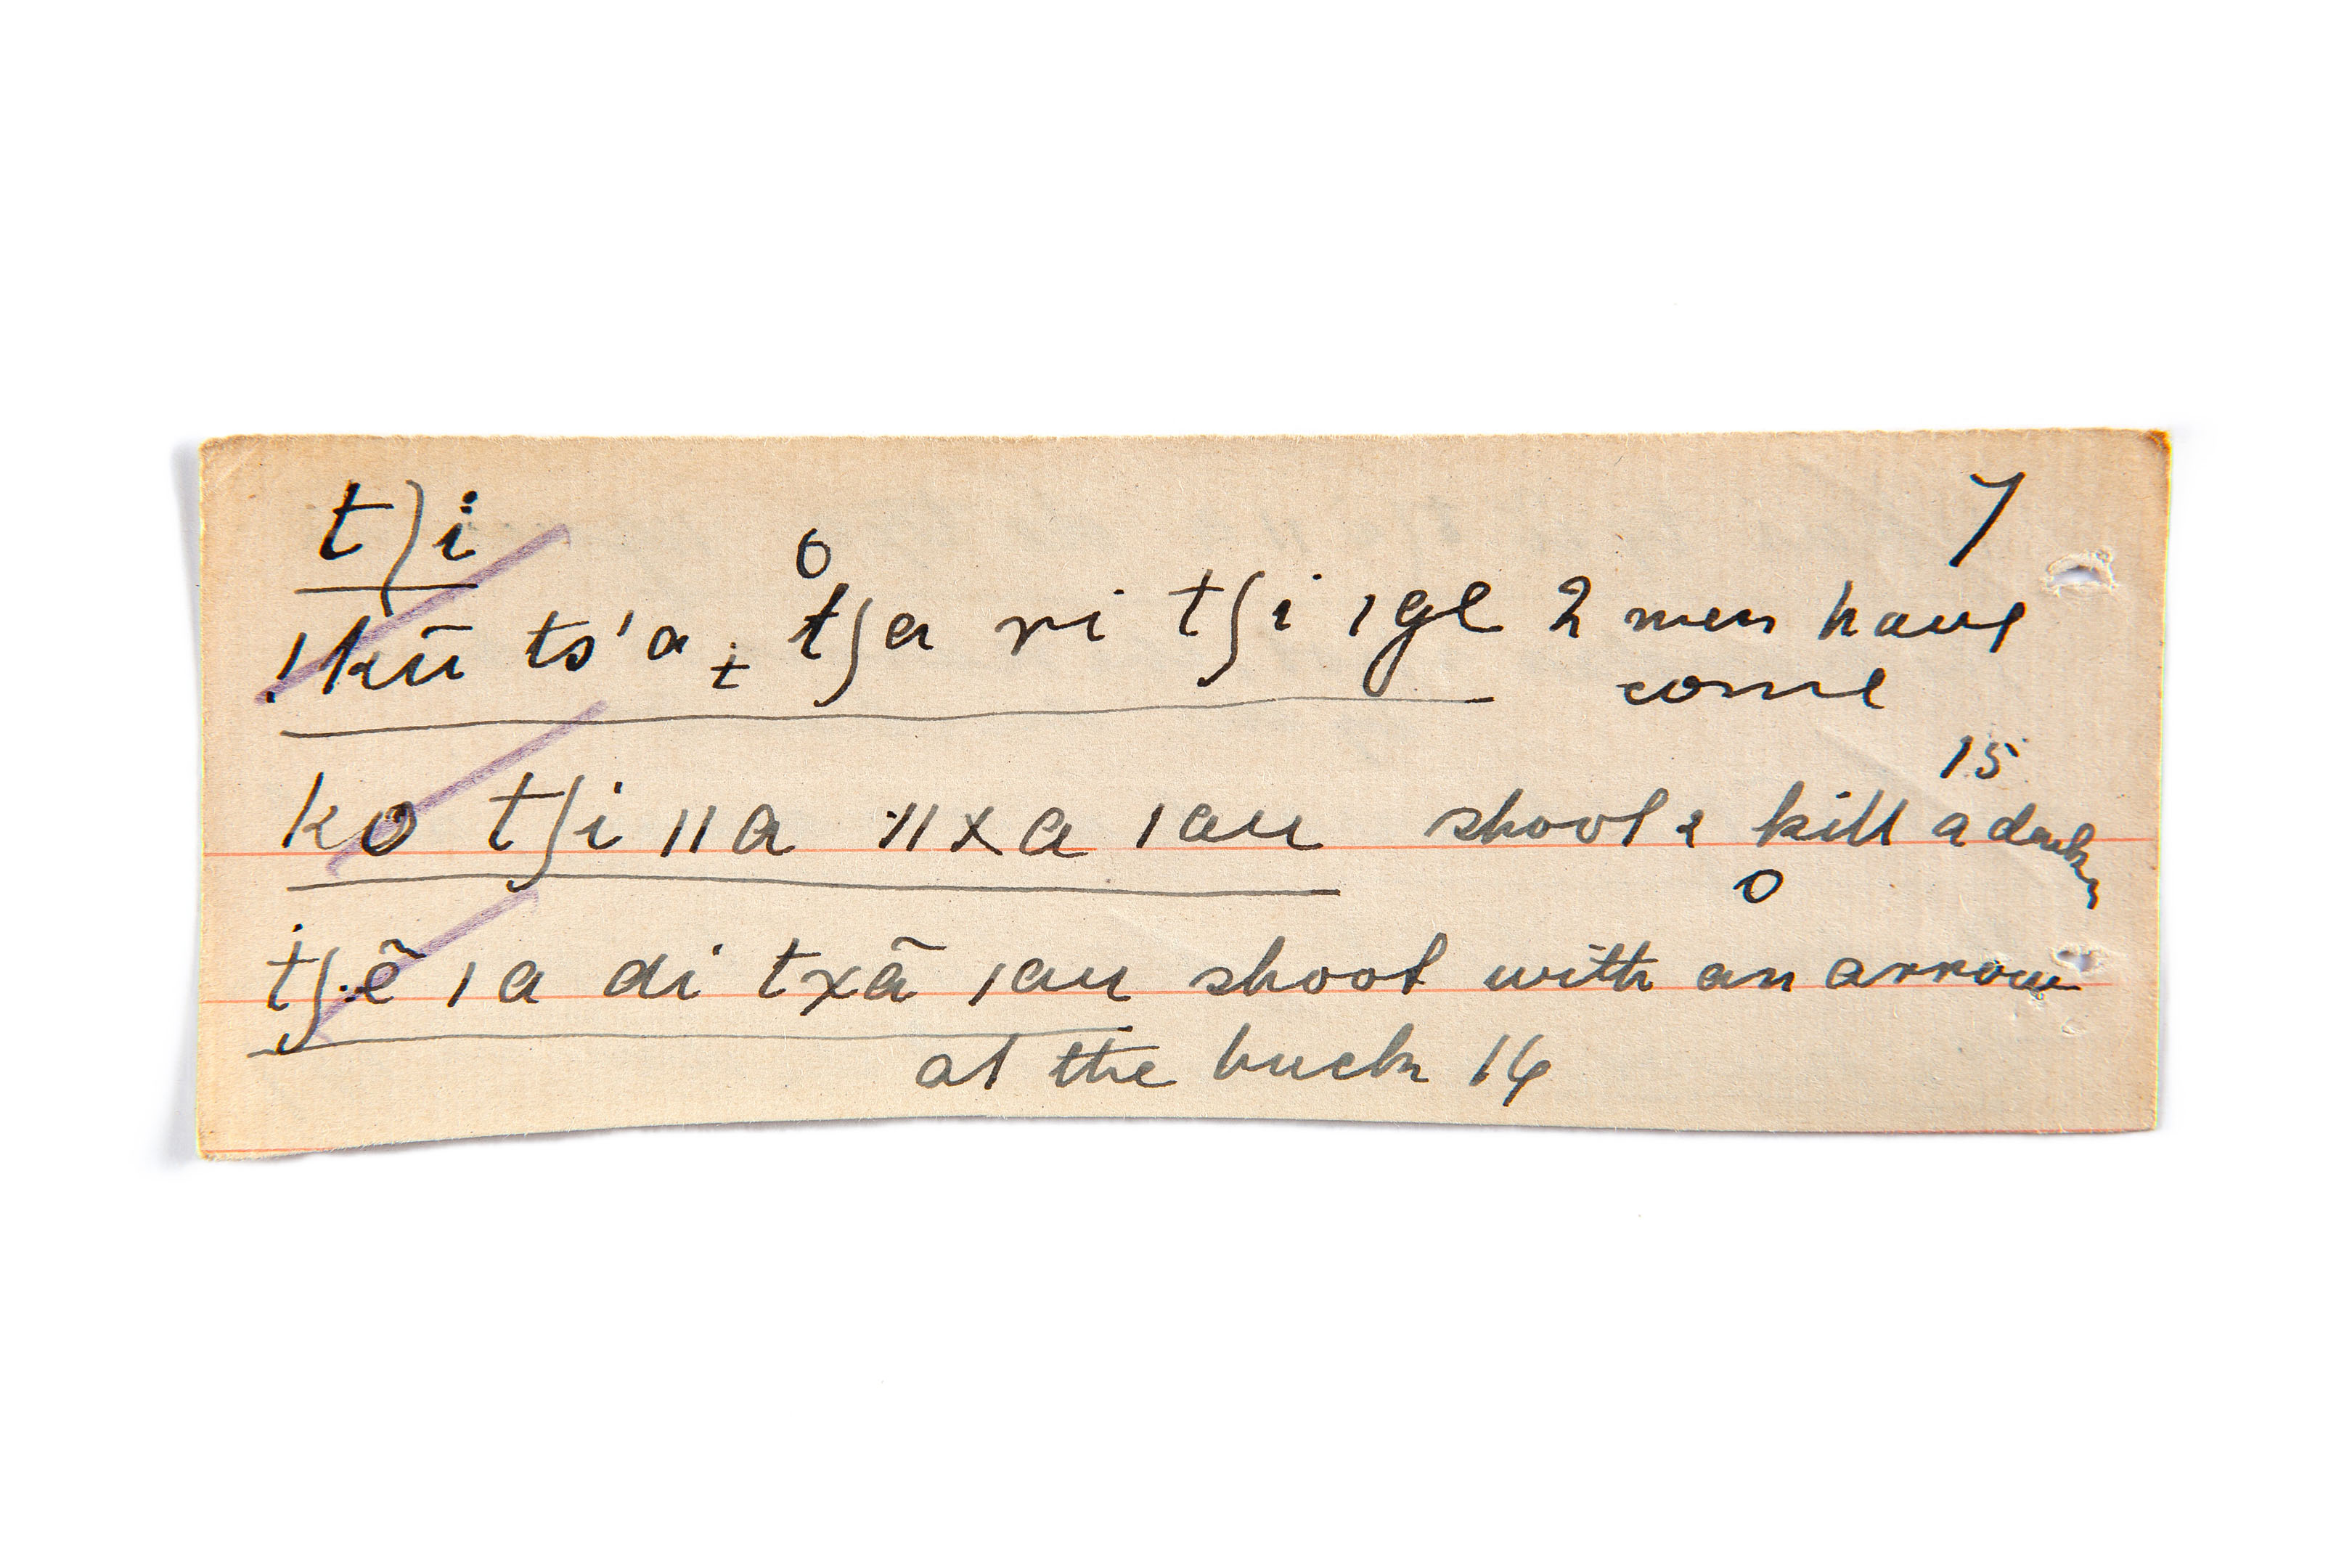 tʃi 7
!kũ ts'a, tʃa ri tʃi ǀge 2 men have
come
15
ko tʃi ǁa ǁxa ǀau shoot & kill a duck
tʃẽ ǀa di txã ǀau shoot with an arrow
at the buck 14